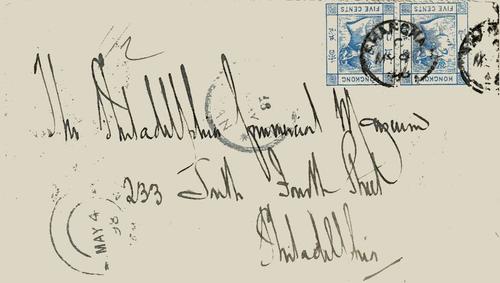 FIVE CENTS FIVE CENTS
HONGKONG HONGKONG
SHANGHAI
The Philadelphia Commercial Museum
233 South Fourth Street
Philadelphia
MAY 4
98